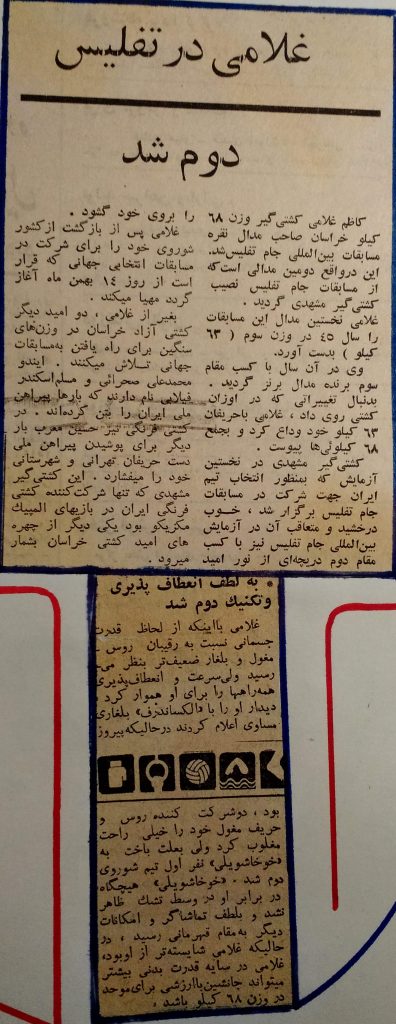 غلامی در تفلیس
دوم شد
کاظم غلامی کشتی‌گیر وزن ۶۸
کیلو خراسان صاحب مدال نقره
مسابقات بین‌المللی جام تفلیس‌شد.
این درواقع دومین مدالی است‌که
از مسابقات جام تفلیس نصیب
کشتی‌گیر مشهدی گردید .
غلامی نخستین مدال این مسابقات
را سال ٤٥ در وزن سوم ( ۶۳
کیلو ) بدست آورد.
وی در آن سال با کسب مقام
سوم برنده مدال برنز گردید .
بدنبال تغییراتی که در اوزان
کشتی روی داد ، غلامی باحریفان
۶۳ کیلو خود وداع کرد و بجمع
۶۸ کیلوئی‌ها پیوست .
کشتی‌گیر مشهدی در نخستین
آزمایش که بمنظور انتخاب تیم
ایران جهت شرکت در مسابقات
جام تفلیس برگزار شد ، خوب
درخشید و متعاقب آن در آزمایش
بین‌المللی جام تفلیس نیز با کسب
مقام دوم دریچه‌ای از نور امید
را بروی خود گشود .
غلامی پس از بازگشت ازکشور
شوروی خود را برای شرکت در
مسابقات انتخابی جهانی که قرار
است از روز ١٤ بهمن ماه آغاز
گردد مهیا میکند .
بغیر از غلامی ، دو امید دیگر
کشتی آزاد خراسان در وزن‌های
سنگین برای راه یافتن به‌مسابقات
جهانی تلاش میکنند . ایندو
محمدعلی صحرائی و مسلم‌اسکندر
فیلابی نام دارند که بارها پیراهن
ملی ایران را بتن کرده‌اند . در
کشتی فرنگی نیز حسین معرب بار
دیگر برای پوشیدن پیراهن ملی
دست حریفان تهرانی و شهرستانی
خود را میفشارد . این کشتی‌گیر
مشهدی که تنها شرکت‌کننده کشتی
فرنگی ایران در بازیهای المپیک
مکزیکو بود یکی دیگر از چهره
های امید کشتی خراسان بشمار
میرود .
• به لطف انعطاف پذیری
وتکنیک دوم شد
غلامی بااینکه از لحاظ قدرت
جسمانی نسبت به رقیبان روس ـ
مغول و بلغار ضعیف‌تر بنظر می‌ـ
رسید ولی‌سرعت و انعطاف‌پذیری
همه‌راهها را برای او هموار کرد .
دیدار او را با «الکساندرف» بلغاری
مساوی اعلام کردند درحالیکه‌پیروز
بود ، دوشرکت کننده روس و
حریف مغول خود را خیلی راحت
مغلوب کرد ولی بعلت باخت به
«خوخاشویلی» نفر اول تیم شوروی
دوم شد . «خوخاشویلی» هیچگاه
در برابر او در وسط تشک ظاهر
نشد و بلطف تماشاگر و امکانات
دیگر به‌مقام قهرمانی رسید ، در
حالیکه غلامی شایسته‌تر از اوبود،
غلامی در سایه قدرت بدنی بیشتر
میتواند جانشین‌باارزشی برای‌موحد
در وزن ۶۸ کیلو باشد .